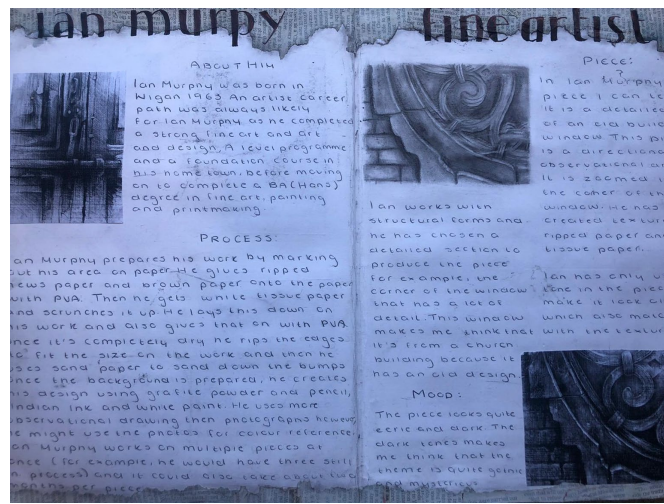 ian murpy
fine artist
ABOUT HIM
Ian Murphy was born in
Wigan 1963 An artist career
path was always likely
For Ian Murphy as he completed
a strong fine art and art
and design, A level programme
and a foundation course in
his home town, before moving
on to complete a BA(Hons)
degree in fine art, painting
and printmaking.
PROCESS:
an Murphy prepares his work by marking
out his area on paper. He glues ripped
ews paper and brown paper onto the paper
with PVA. Then he gets white tissue paper
nd scrunches it up. He lays this down on
is work and also glues that on with PVA.
nce it's completely dry he rips the edges
to fit the size on the work and then he
ses sand paper to sand down the bumps
nce the background is prepared, he creates
is design using grafite powder and pencil,
ndian ink and white paint. He uses more
bservational drawing then photographs however
e might use the photos for colour reference.
an Murphy works on multiple pieces at
nce (for example, he would have three still
process) and it could also take about two
per piece
Ian works with
structural forms and
he has chosen a
detailed section to
produce the piece
For example, the
corner of the window
that has a lot of
detail. This window
makes me think that
it's from a church
building because it
has an old design.
MOOD:
The piece looks quite
eerie and dark. The
dark tones makes
me think that the
theme is quite gothic
and mysterious
PIECE:
?
In Ian Murphy
piece I can te
It is a detailed
of an old build
window. This p
is a directiona
observational a
It is zoomed
the corner of th
window. He has
created textur
ripped paper an
tissue paper.
Ian has only u
tone in the piec
make it look a
which also mat
with the textur